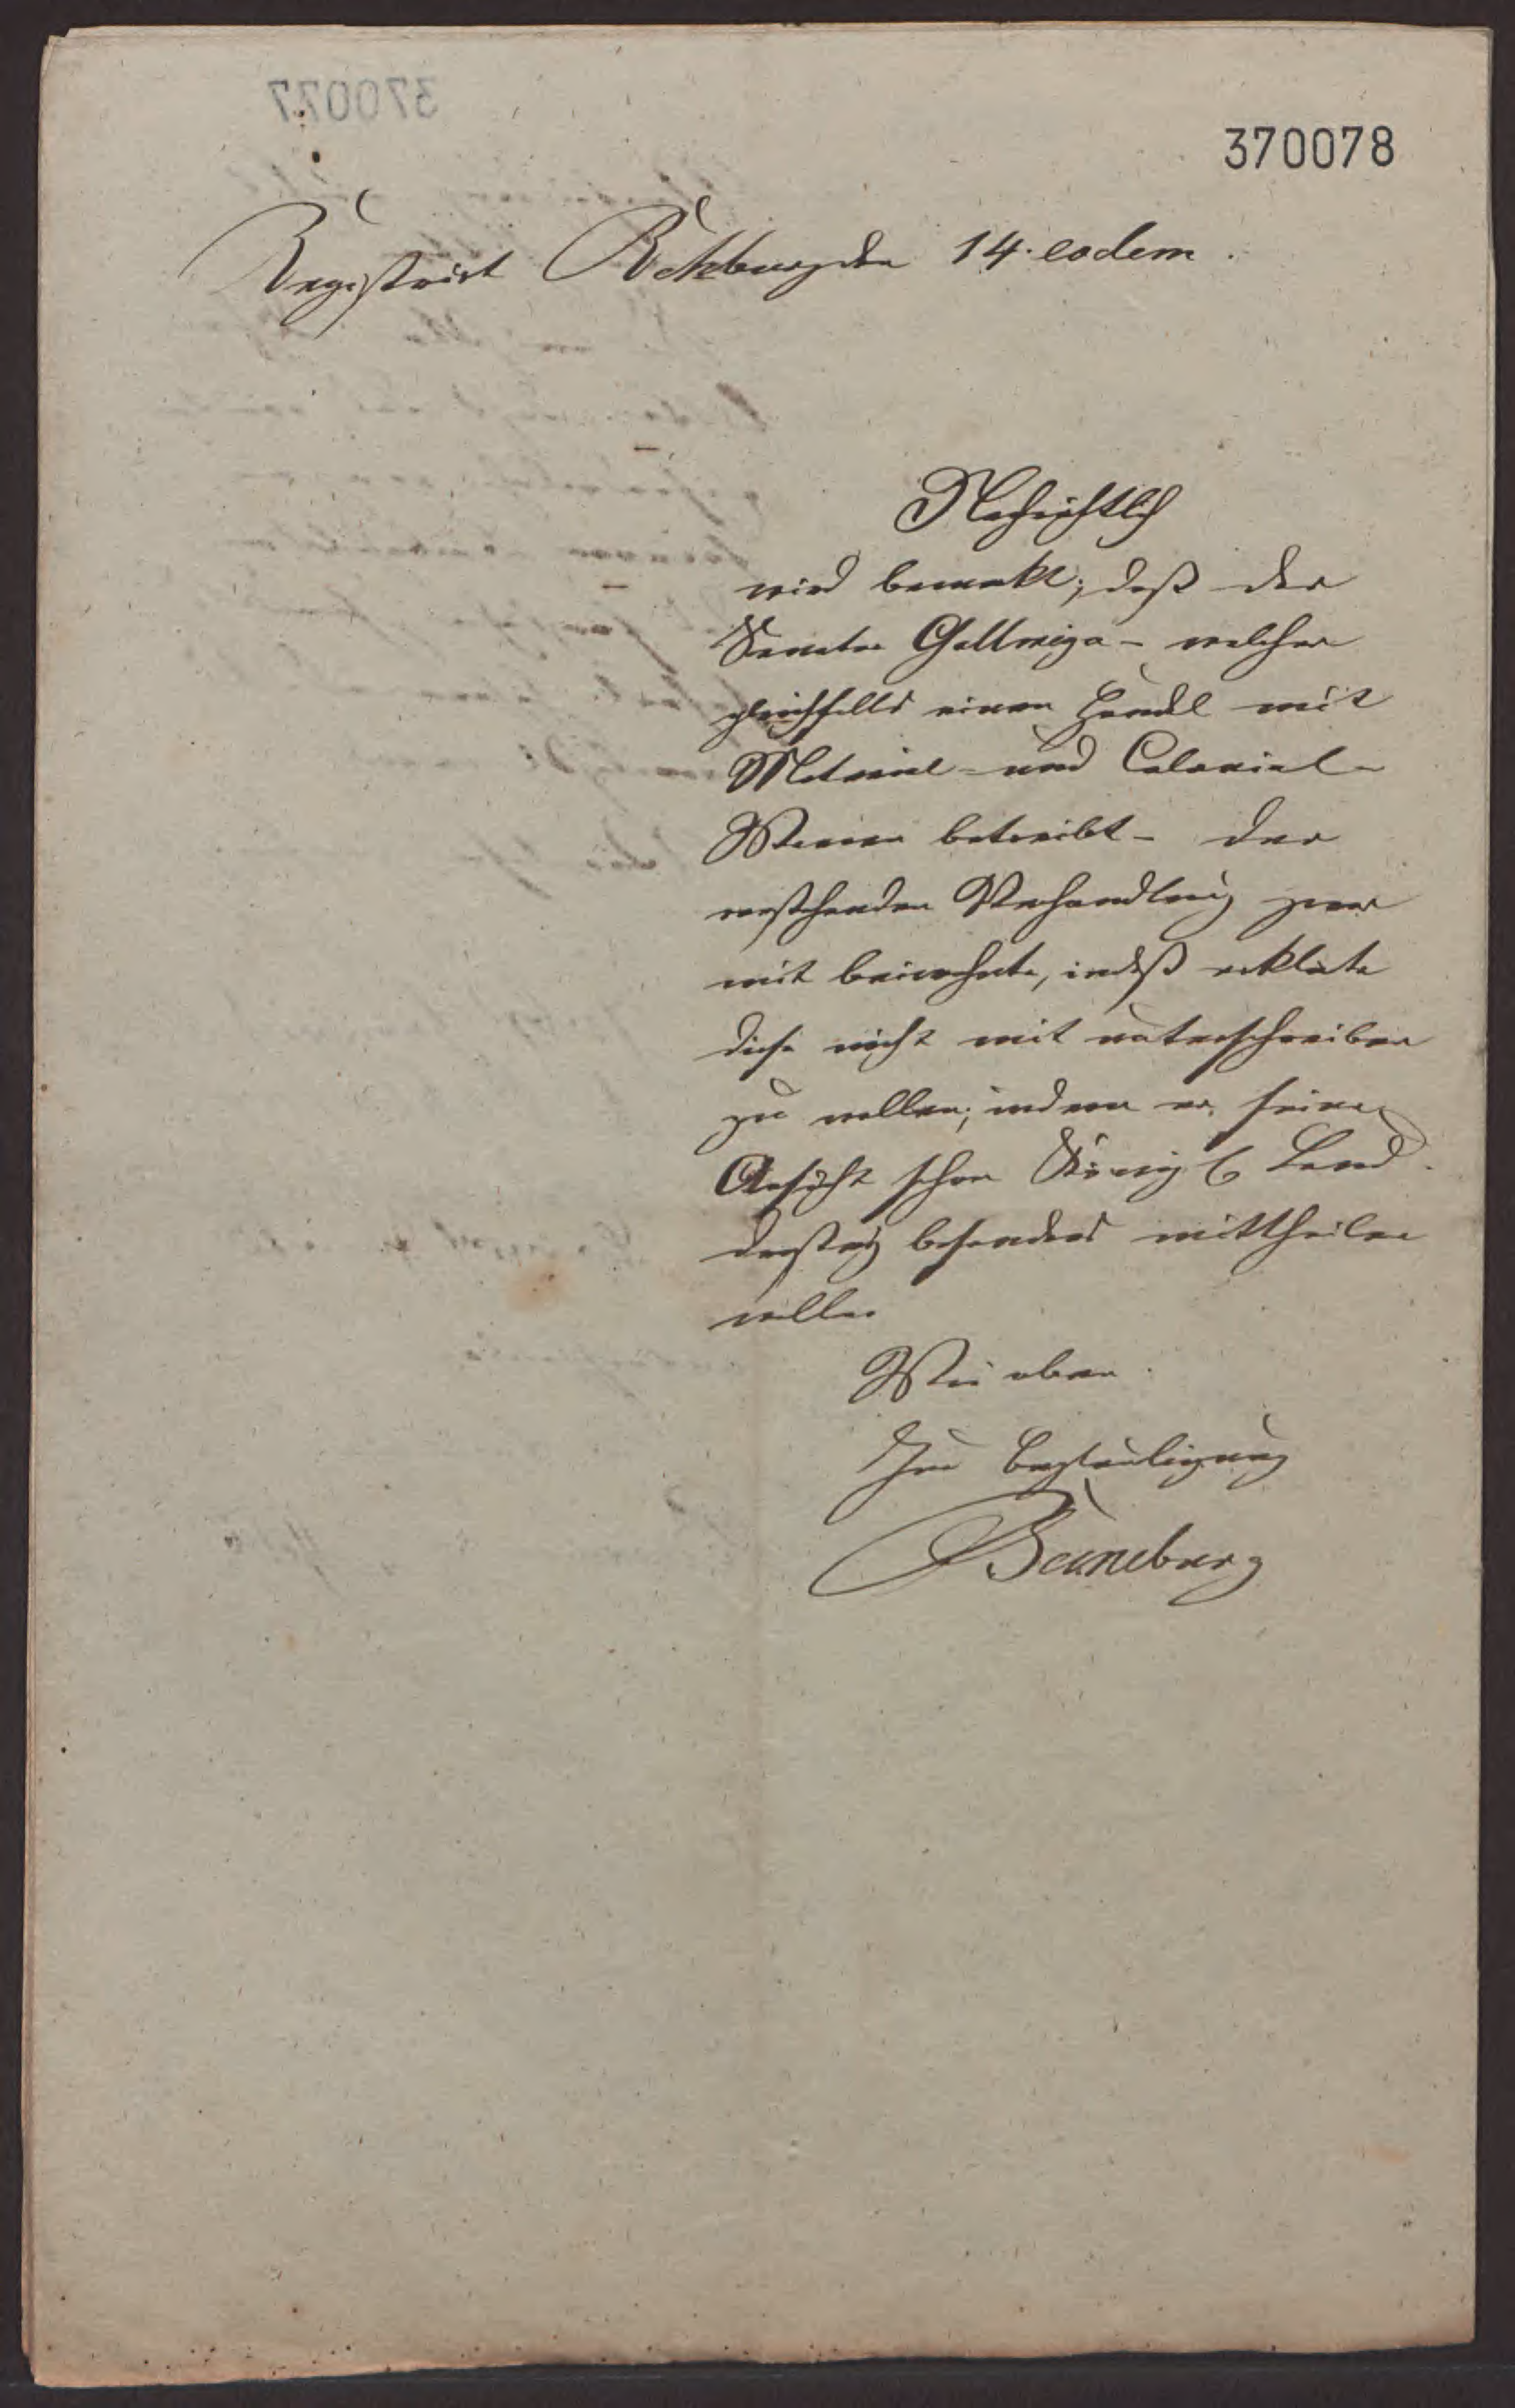 370078
Registrirt Rehburg den 14. eodem.
Nachrichtlich
wird bemerkt, daß der
Senator Gallmeyer - welcher
gleichfalls einen Handel mit
Material- und Colonial-
Waaren betreibt - der
vorstehenden Verhandlung zwar
mit beiwohnte, indeß erklärte
diese nicht mit unterschreiben
zu wollen, indem er seine
Ansicht schon Königl Land
drostey besonders mittheilen
wolle.
Wie oben.
Zur Beglaubigung
Beuneburg